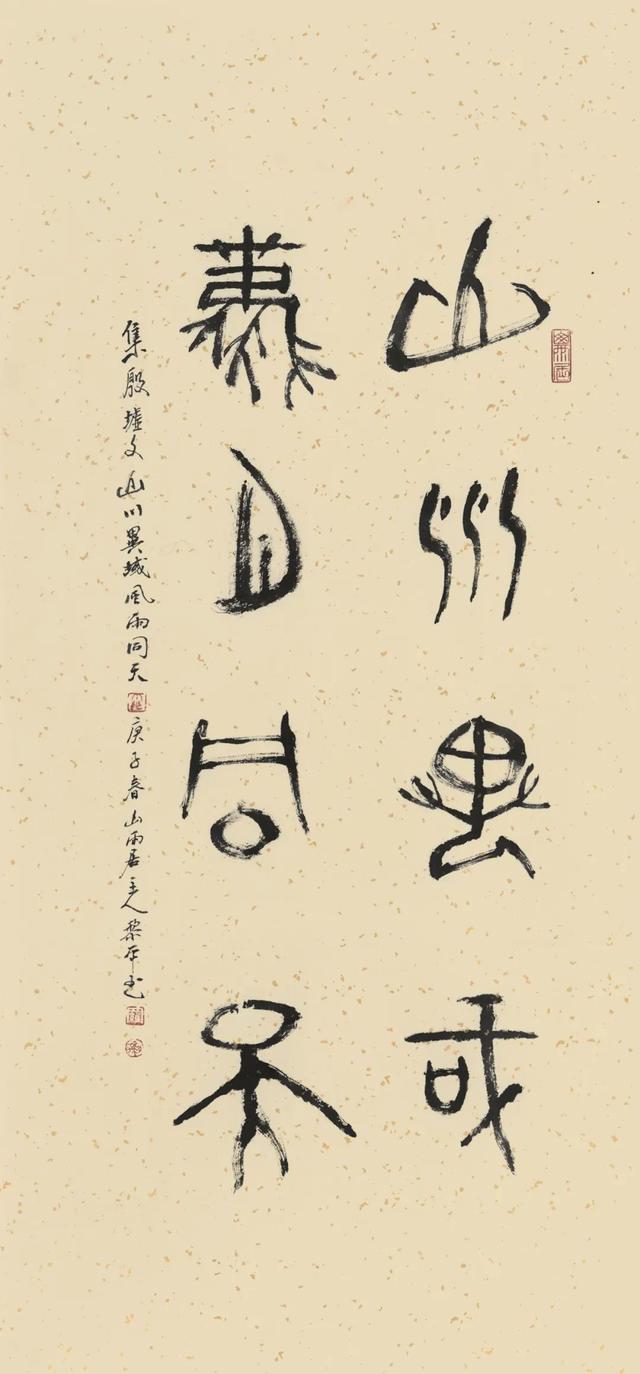 山川異域
風月同天
集殷墟文山川異域風雨同天 庚子春山雨居主人黎平书